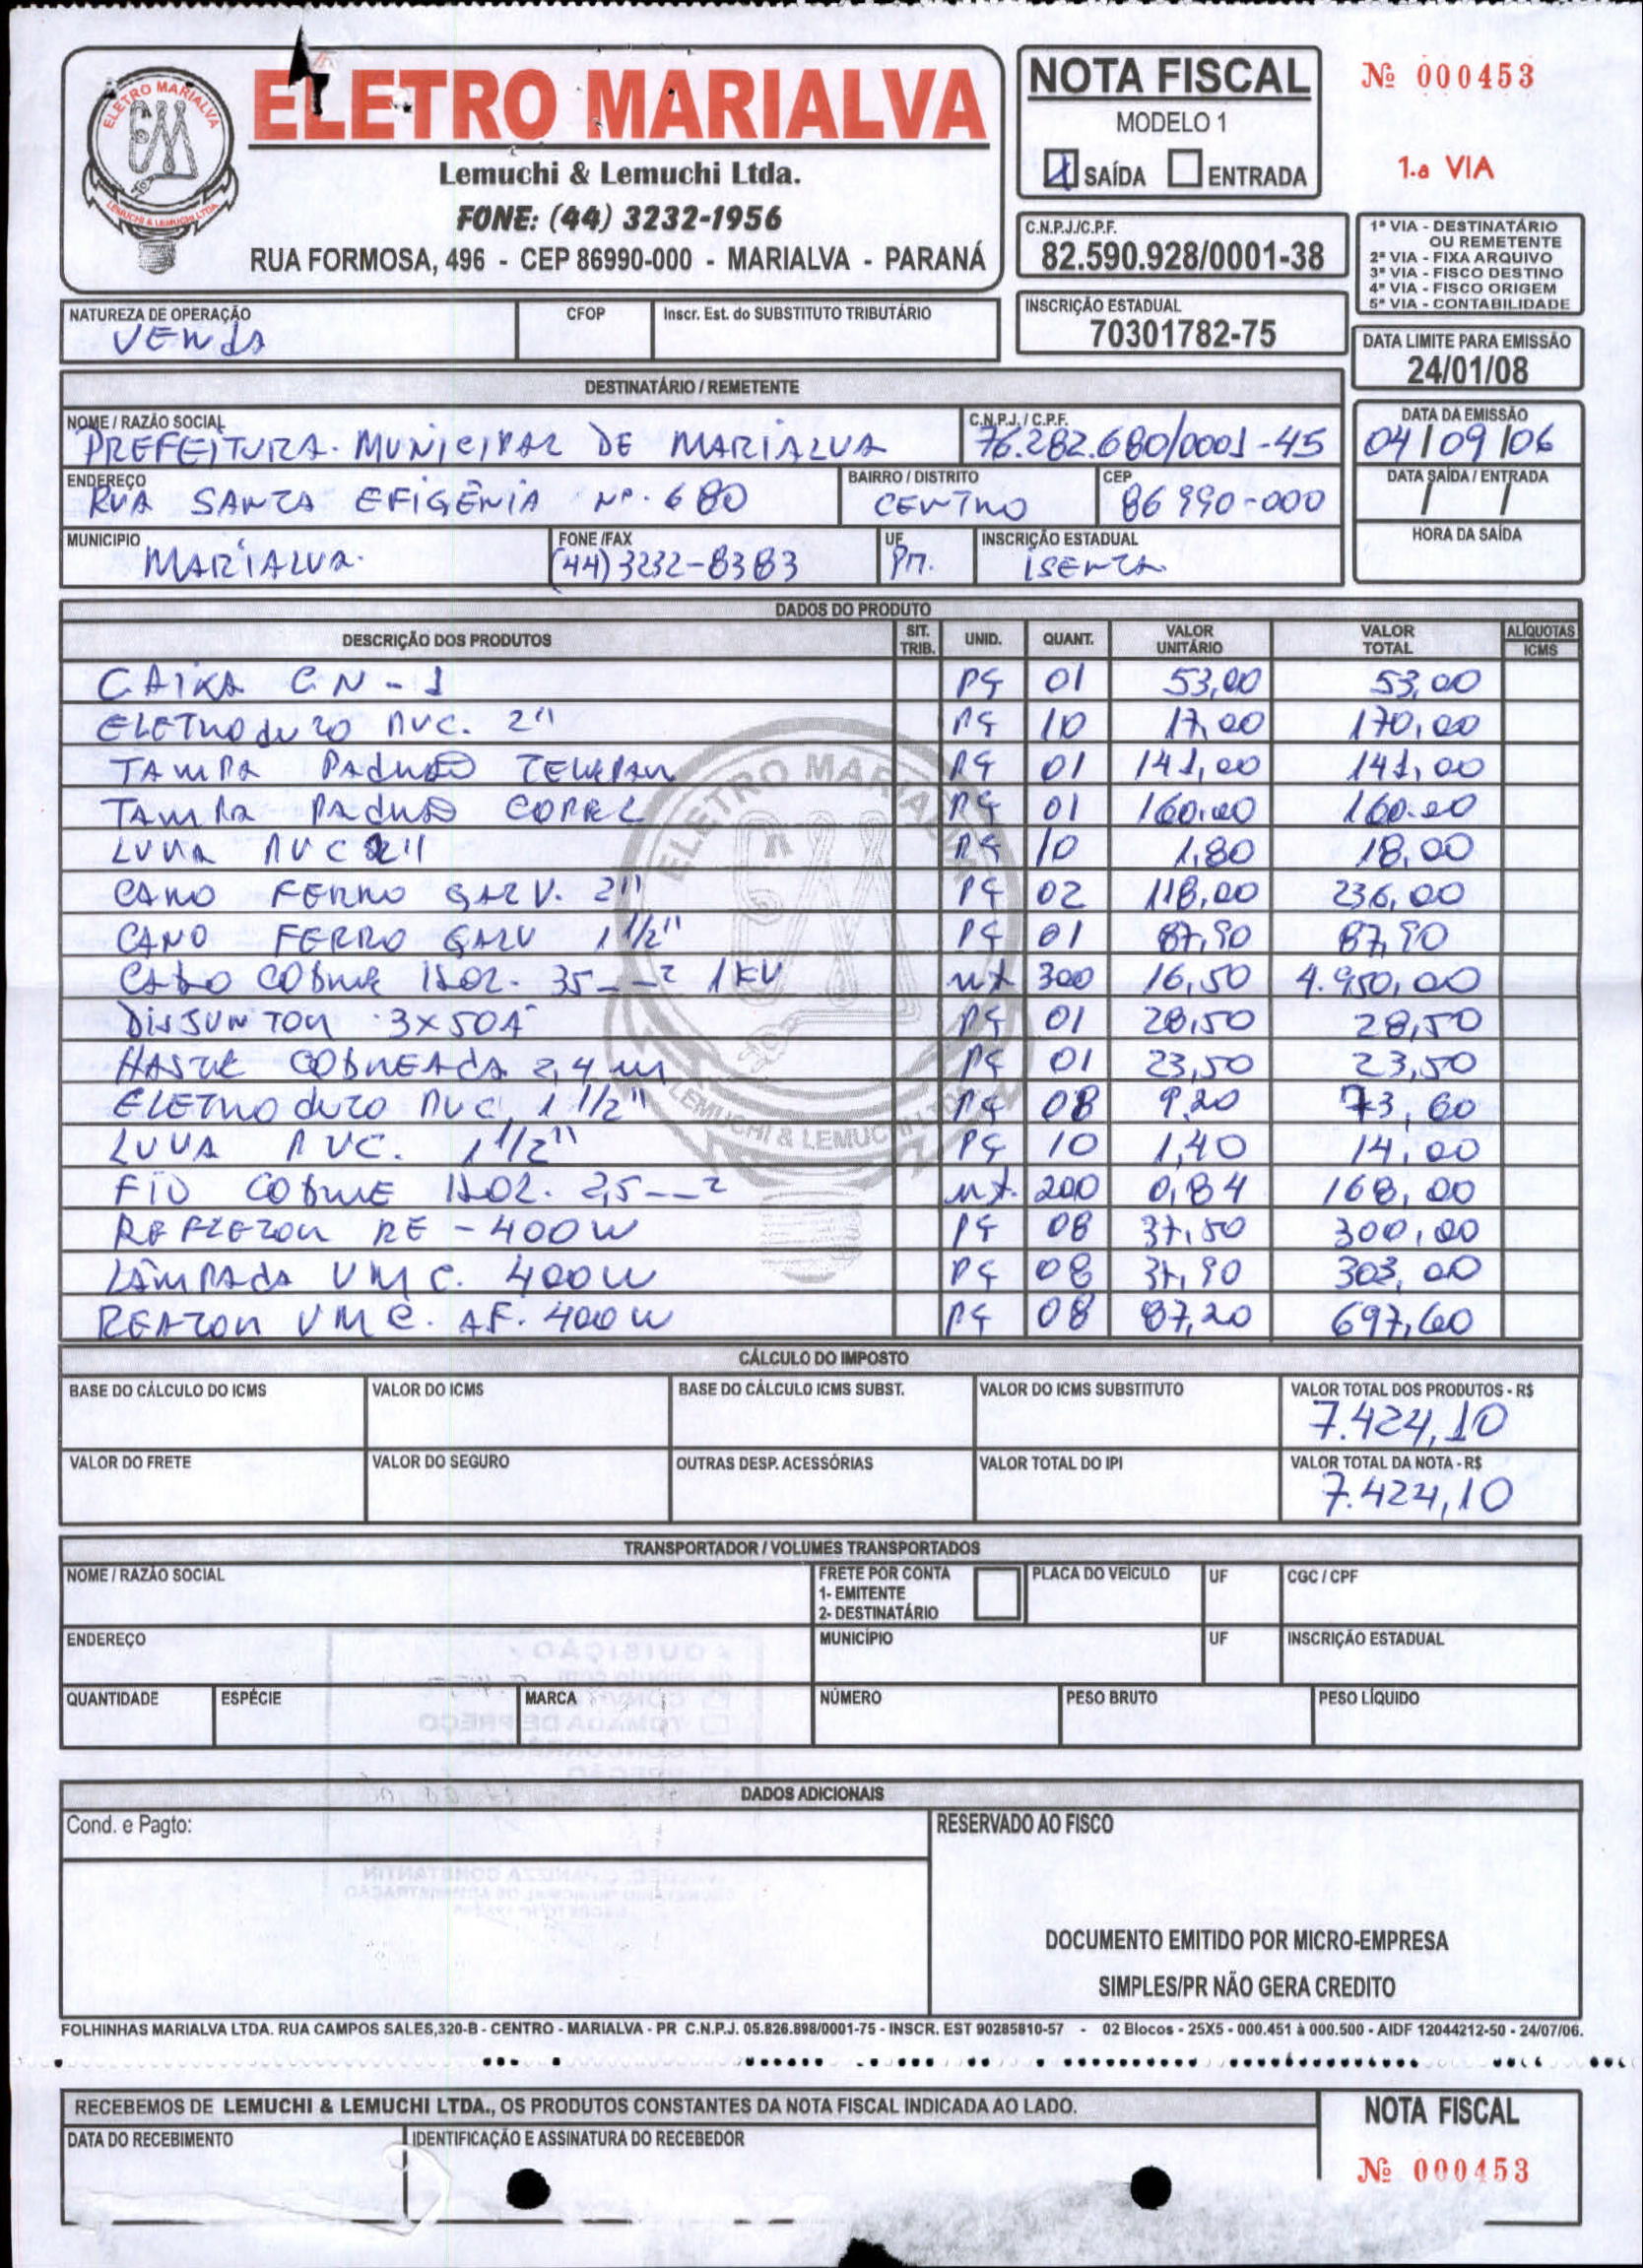 ELETRO MARIALVA
Lemuchi & Lemuchi Ltda.
FONE: (44) 3232-1956
RUA FORMOSA, 496 - CEP 86990-000 - MARIALVA - PARANÁ
ELETRO MARIALVA
LEMUCHI & LEMUCHI LTDA
NOTA FISCAL
MODELO 1
X SAÍDA ENTRADA
Nº 000453
1.a VIA
C.N.P.J./C.P.F.
82.590.928/0001-38
INSCRIÇÃO ESTADUAL
70301782-75
1ª VIA - DESTINATÁRIO
OU REMETENTE
2ª VIA - FIXA ARQUIVO
3ª VIA - FISCO DESTINO
4ª VIA - FISCO ORIGEM
5ª VIA - CONTABILIDADE
DATA LIMITE PARA EMISSÃO
24/01/08
NATUREZA DE OPERAÇÃO CFOP Inscr. Est. do SUBSTITUTO TRIBUTÁRIO
VENDA
DESTINATÁRIO / REMETENTE
NOME / RAZÃO SOCIAL C.N.P.J. / C.P.F. DATA DA EMISSÃO
PREFEITURA MUNICIPAL DE MARIALVA 76.282.680/0001-45 04/09/06
ENDEREÇO BAIRRO / DISTRITO CEP DATA SAÍDA / ENTRADA
RUA SANTA EFIGÊNIA Nº. 680 CENTRO 86990-000 / /
MUNICIPIO FONE /FAX UF INSCRIÇÃO ESTADUAL HORA DA SAÍDA
MARIALVA. (44) 3232-8383 PR. ISENTA
DADOS DO PRODUTO
DESCRIÇÃO DOS PRODUTOS SIT. TRIB. UNID. QUANT. VALOR UNITÁRIO VALOR TOTAL ALÍQUOTAS ICMS
CAIXA CN-1 PÇ 01 53,00 53,00
ELETRODUTO PVC. 2" PÇ 10 17,00 170,00
TAMPA PADRÃO TELEPAR PÇ 01 141,00 141,00
TAMPA PADRÃO COPEL PÇ 01 160,00 160.00
LUVA PVC 2" PÇ 10 1,80 18,00
CANO FERRO GALV. 2" PÇ 02 118,00 236,00
CANO FERRO GALV 1 1/2" PÇ 01 87,90 87,90
CABO COBRE ISOL. 35mm² 1KV MT 300 16,50 4.950,00
DISJUNTOR 3x50A PÇ 01 28,50 28,50
HASTE COBREADA 2,4 m PÇ 01 23,50 23,50
ELETRODUTO PVC 1 1/2" PÇ 08 9,20 73,60
LUVA PVC. 1 1/2" PÇ 10 1,40 14,00
FIO COBRE ISOL. 2,5mm² MT. 200 0,84 168,00
REFLETOR RE - 400W PÇ 08 37,50 300,00
LÂMPADA VMC. 400W PÇ 08 37,90 303,00
REATOR VMC. AF. 400W PÇ 08 87,20 697,60
CÁLCULO DO IMPOSTO
BASE DO CÁLCULO DO ICMS VALOR DO ICMS BASE DO CÁLCULO ICMS SUBST. VALOR DO ICMS SUBSTITUTO VALOR TOTAL DOS PRODUTOS - R$
7.424,10
VALOR DO FRETE VALOR DO SEGURO OUTRAS DESP. ACESSÓRIAS VALOR TOTAL DO IPI VALOR TOTAL DA NOTA - R$
7.424,10
TRANSPORTADOR / VOLUMES TRANSPORTADOS
NOME / RAZÃO SOCIAL FRETE POR CONTA PLACA DO VEÍCULO UF CGC / CPF
1- EMITENTE
2- DESTINATÁRIO
ENDEREÇO MUNICÍPIO UF INSCRIÇÃO ESTADUAL
QUANTIDADE ESPÉCIE MARCA NÚMERO PESO BRUTO PESO LÍQUIDO
DADOS ADICIONAIS
Cond. e Pagto: RESERVADO AO FISCO
DOCUMENTO EMITIDO POR MICRO-EMPRESA
SIMPLES/PR NÃO GERA CREDITO
FOLHINHAS MARIALVA LTDA. RUA CAMPOS SALES,320-B - CENTRO - MARIALVA - PR C.N.P.J. 05.826.898/0001-75 - INSCR. EST 90285810-57 - 02 Blocos - 25X5 - 000.451 à 000.500 - AIDF 12044212-50 - 24/07/06.
RECEBEMOS DE LEMUCHI & LEMUCHI LTDA., OS PRODUTOS CONSTANTES DA NOTA FISCAL INDICADA AO LADO.
DATA DO RECEBIMENTO IDENTIFICAÇÃO E ASSINATURA DO RECEBEDOR
NOTA FISCAL
Nº 000453